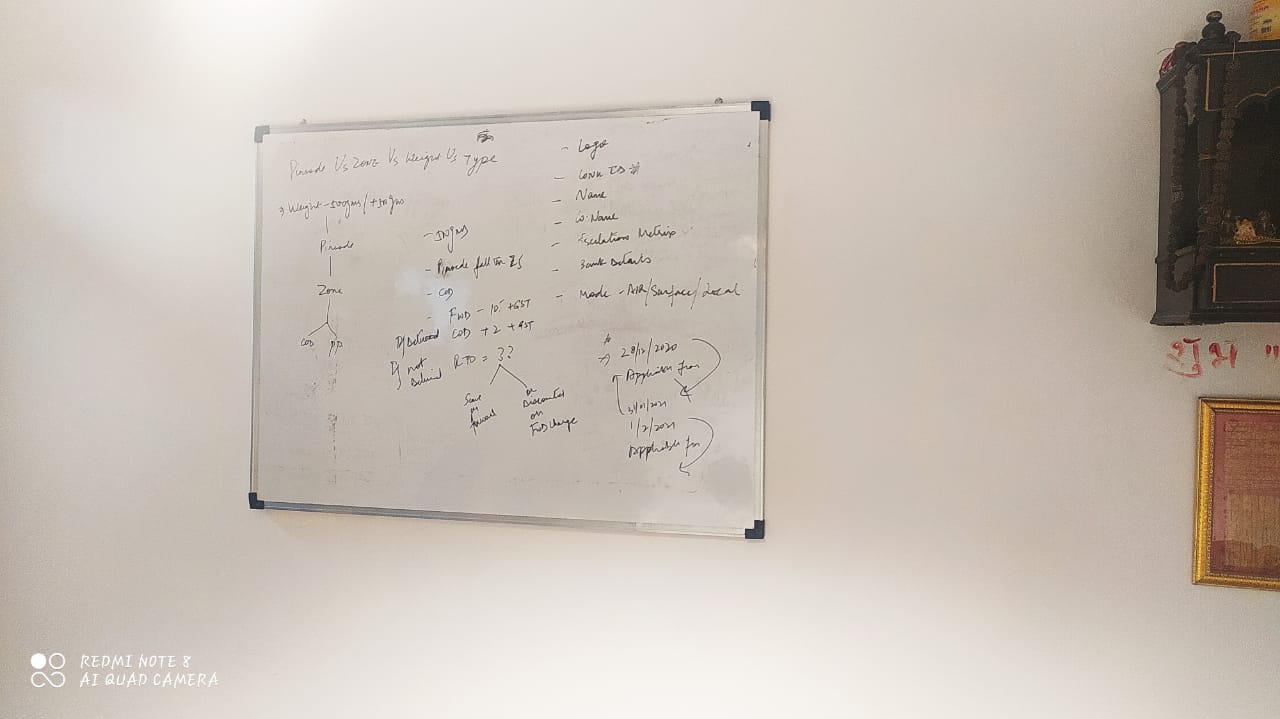 Pincode Vs ZONE Vs Weight Vs Type
→ Weight - 500gms / +500gms
Pincode
Zone
COD PP
- 500gms
- Pincode fall in ZS
- COD
- FWD - 10 + GST
If Delivered COD + 2 + GST
If not Delivered RTO = ??
Same as forward
or Discounted on FWD charge
- Logo
- CONN ID #
- Name
- Co. Name
- Escalations Metrix
- Bank Details
- Mode - AIR/Surface/Local
28/12/2020
Applicable from
31/01/2021
1/2/2021
Applicable from
शुभ "
REDMI NOTE 8
AI QUAD CAMERA